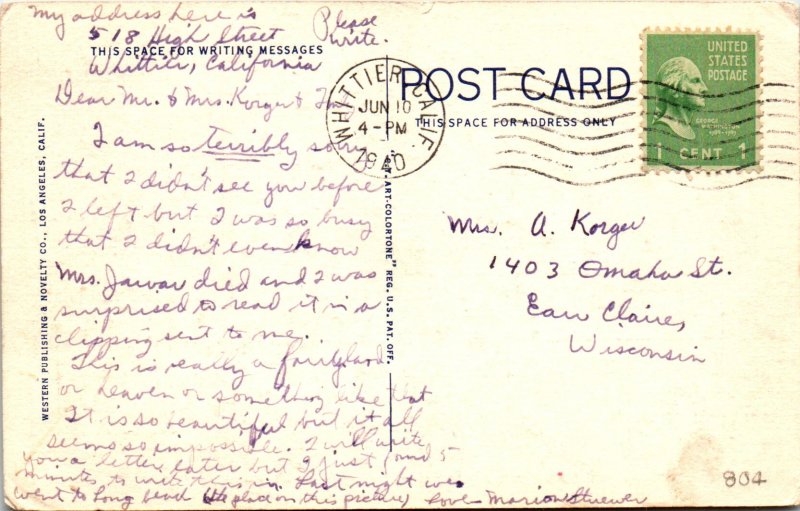 My address here is
518 High Street
Please
write.
THIS SPACE FOR WRITING MESSAGES
Whittier, California
Dear Mr. & Mrs. Korger &
I am so terribly sorry
that I didn't see you before
I left but I was so busy
that I didn't even know
Mrs. died and I was
surprised to read it in a
clipping sent to me.
This is really a fairyland
or heaven or something like that
It is so beautiful but it all
seems so impossible. I will write
you a letter later but I just found 5
minutes to write this in. Last night we
went to Long beach (the place on this picture) Love - Marion
WESTERN PUBLISHING & NOVELTY CO., LOS ANGELES, CALIF.
ART-COLORTONE" REG. U.S. PAT. OFF.
WHITTIER, CALIF.
JUN 10
4 - PM
1940
POST CARD
THIS SPACE FOR ADDRESS ONLY
UNITED
STATES
POSTAGE
GEORGE
WASHINGTON
1 CENT 1
Mrs. A. Korger
1403 Omaha St.
Eau Claire,
Wisconsin
804